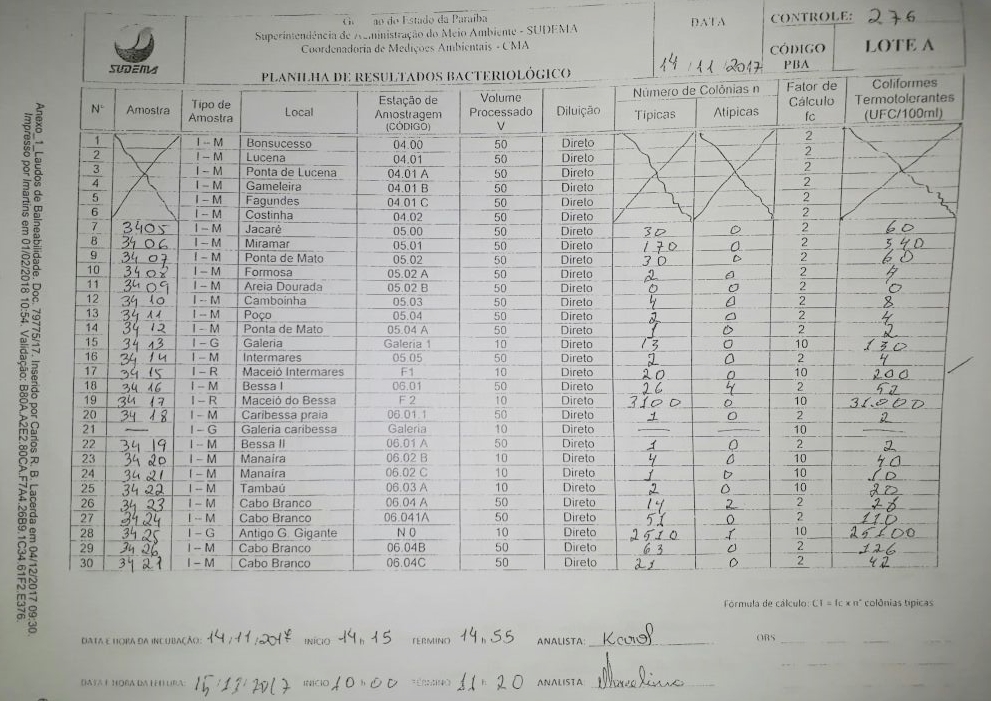 do Estado da Paraíba
Superintendência de Administração do Meio Ambiente - SUDEMA
Coordenadoria de Medições Ambientais - CMA
PLANILHA DE RESULTADOS BACTERIOLÓGICO
SUDEMA
DATA
14 / 11 / 2017
CONTROLE: 276
CÓDIGO PBA
LOTE A
N° Amostra Tipo de Amostra Local Estação de Amostragem (CÓDIGO) Volume Processado V Diluição Número de Colônias n Típicas Atípicas Fator de Cálculo fc Coliformes Termotolerantes (UFC/100ml)
1 I – M Bonsucesso 04.00 50 Direto 2
2 I – M Lucena 04.01 50 Direto 2
3 I – M Ponta de Lucena 04.01 A 50 Direto 2
4 I – M Gameleira 04.01 B 50 Direto 2
5 I – M Fagundes 04.01 C 50 Direto 2
6 I – M Costinha 04.02 50 Direto 2
7 3405 I – M Jacaré 05.00 50 Direto 30 0 2 60
8 3406 I – M Miramar 05.01 50 Direto 170 0 2 340
9 3407 I – M Ponta de Mato 05.02 50 Direto 30 0 2 60
10 3408 I – M Formosa 05.02 A 50 Direto 2 0 2 4
11 3409 I – M Areia Dourada 05.02 B 50 Direto 0 0 2 0
12 3410 I – M Camboinha 05.03 50 Direto 4 0 2 8
13 3411 I – M Poço 05.04 50 Direto 2 0 2 4
14 3412 I – M Ponta de Mato 05.04 A 50 Direto 1 0 2 2
15 3413 I – G Galeria Galeria 1 10 Direto 13 0 10 130
16 3414 I – M Intermares 05.05 50 Direto 2 0 2 4
17 3415 I – R Maceió Intermares F1 10 Direto 20 0 10 200
18 3416 I – M Bessa I 06.01 50 Direto 26 4 2 52
19 3417 I – R Maceió do Bessa F 2 10 Direto 3100 0 10 31.000
20 3418 I – M Caribessa praia 06.01.1 50 Direto 1 0 2 2
21 — I – G Galeria caribessa Galeria 10 Direto — — 10 —
22 3419 I – M Bessa II 06.01 A 50 Direto 1 0 2 2
23 3420 I – M Manaíra 06.02 B 10 Direto 4 0 10 40
24 3421 I – M Manaíra 06.02 C 10 Direto 1 0 10 10
25 3422 I – M Tambaú 06.03 A 10 Direto 2 0 10 20
26 3423 I – M Cabo Branco 06.04 A 50 Direto 14 2 2 28
27 3424 I – M Cabo Branco 06.041A 50 Direto 51 0 2 110
28 3425 I – G Antigo G. Gigante N 0 10 Direto 2510 1 10 25100
29 3426 I – M Cabo Branco 06.04B 50 Direto 63 0 2 126
30 3427 I – M Cabo Branco 06.04C 50 Direto 21 0 2 42
Fórmula de cálculo: CT = fc x n° colônias típicas
DATA E HORA DA INCUBAÇÃO: 14/11/2017 INÍCIO 14 h 15 TÉRMINO 14 h 55 ANALISTA: Karol OBS
DATA E HORA DA LEITURA: 15/11/2017 INÍCIO 10 h 00 TÉRMINO 11 h 20 ANALISTA: Marcelino
Anexo_1_Laudos de Balneabilidade. Doc. 79775/17. Inserido por Carlos R. B. Lacerda em 04/12/2017 09:30.
Impresso por lmartins em 01/02/2018 10:54. Validação: B80A.A2E2.80CA.F7A4.26B9.1C34.61F2.E376.